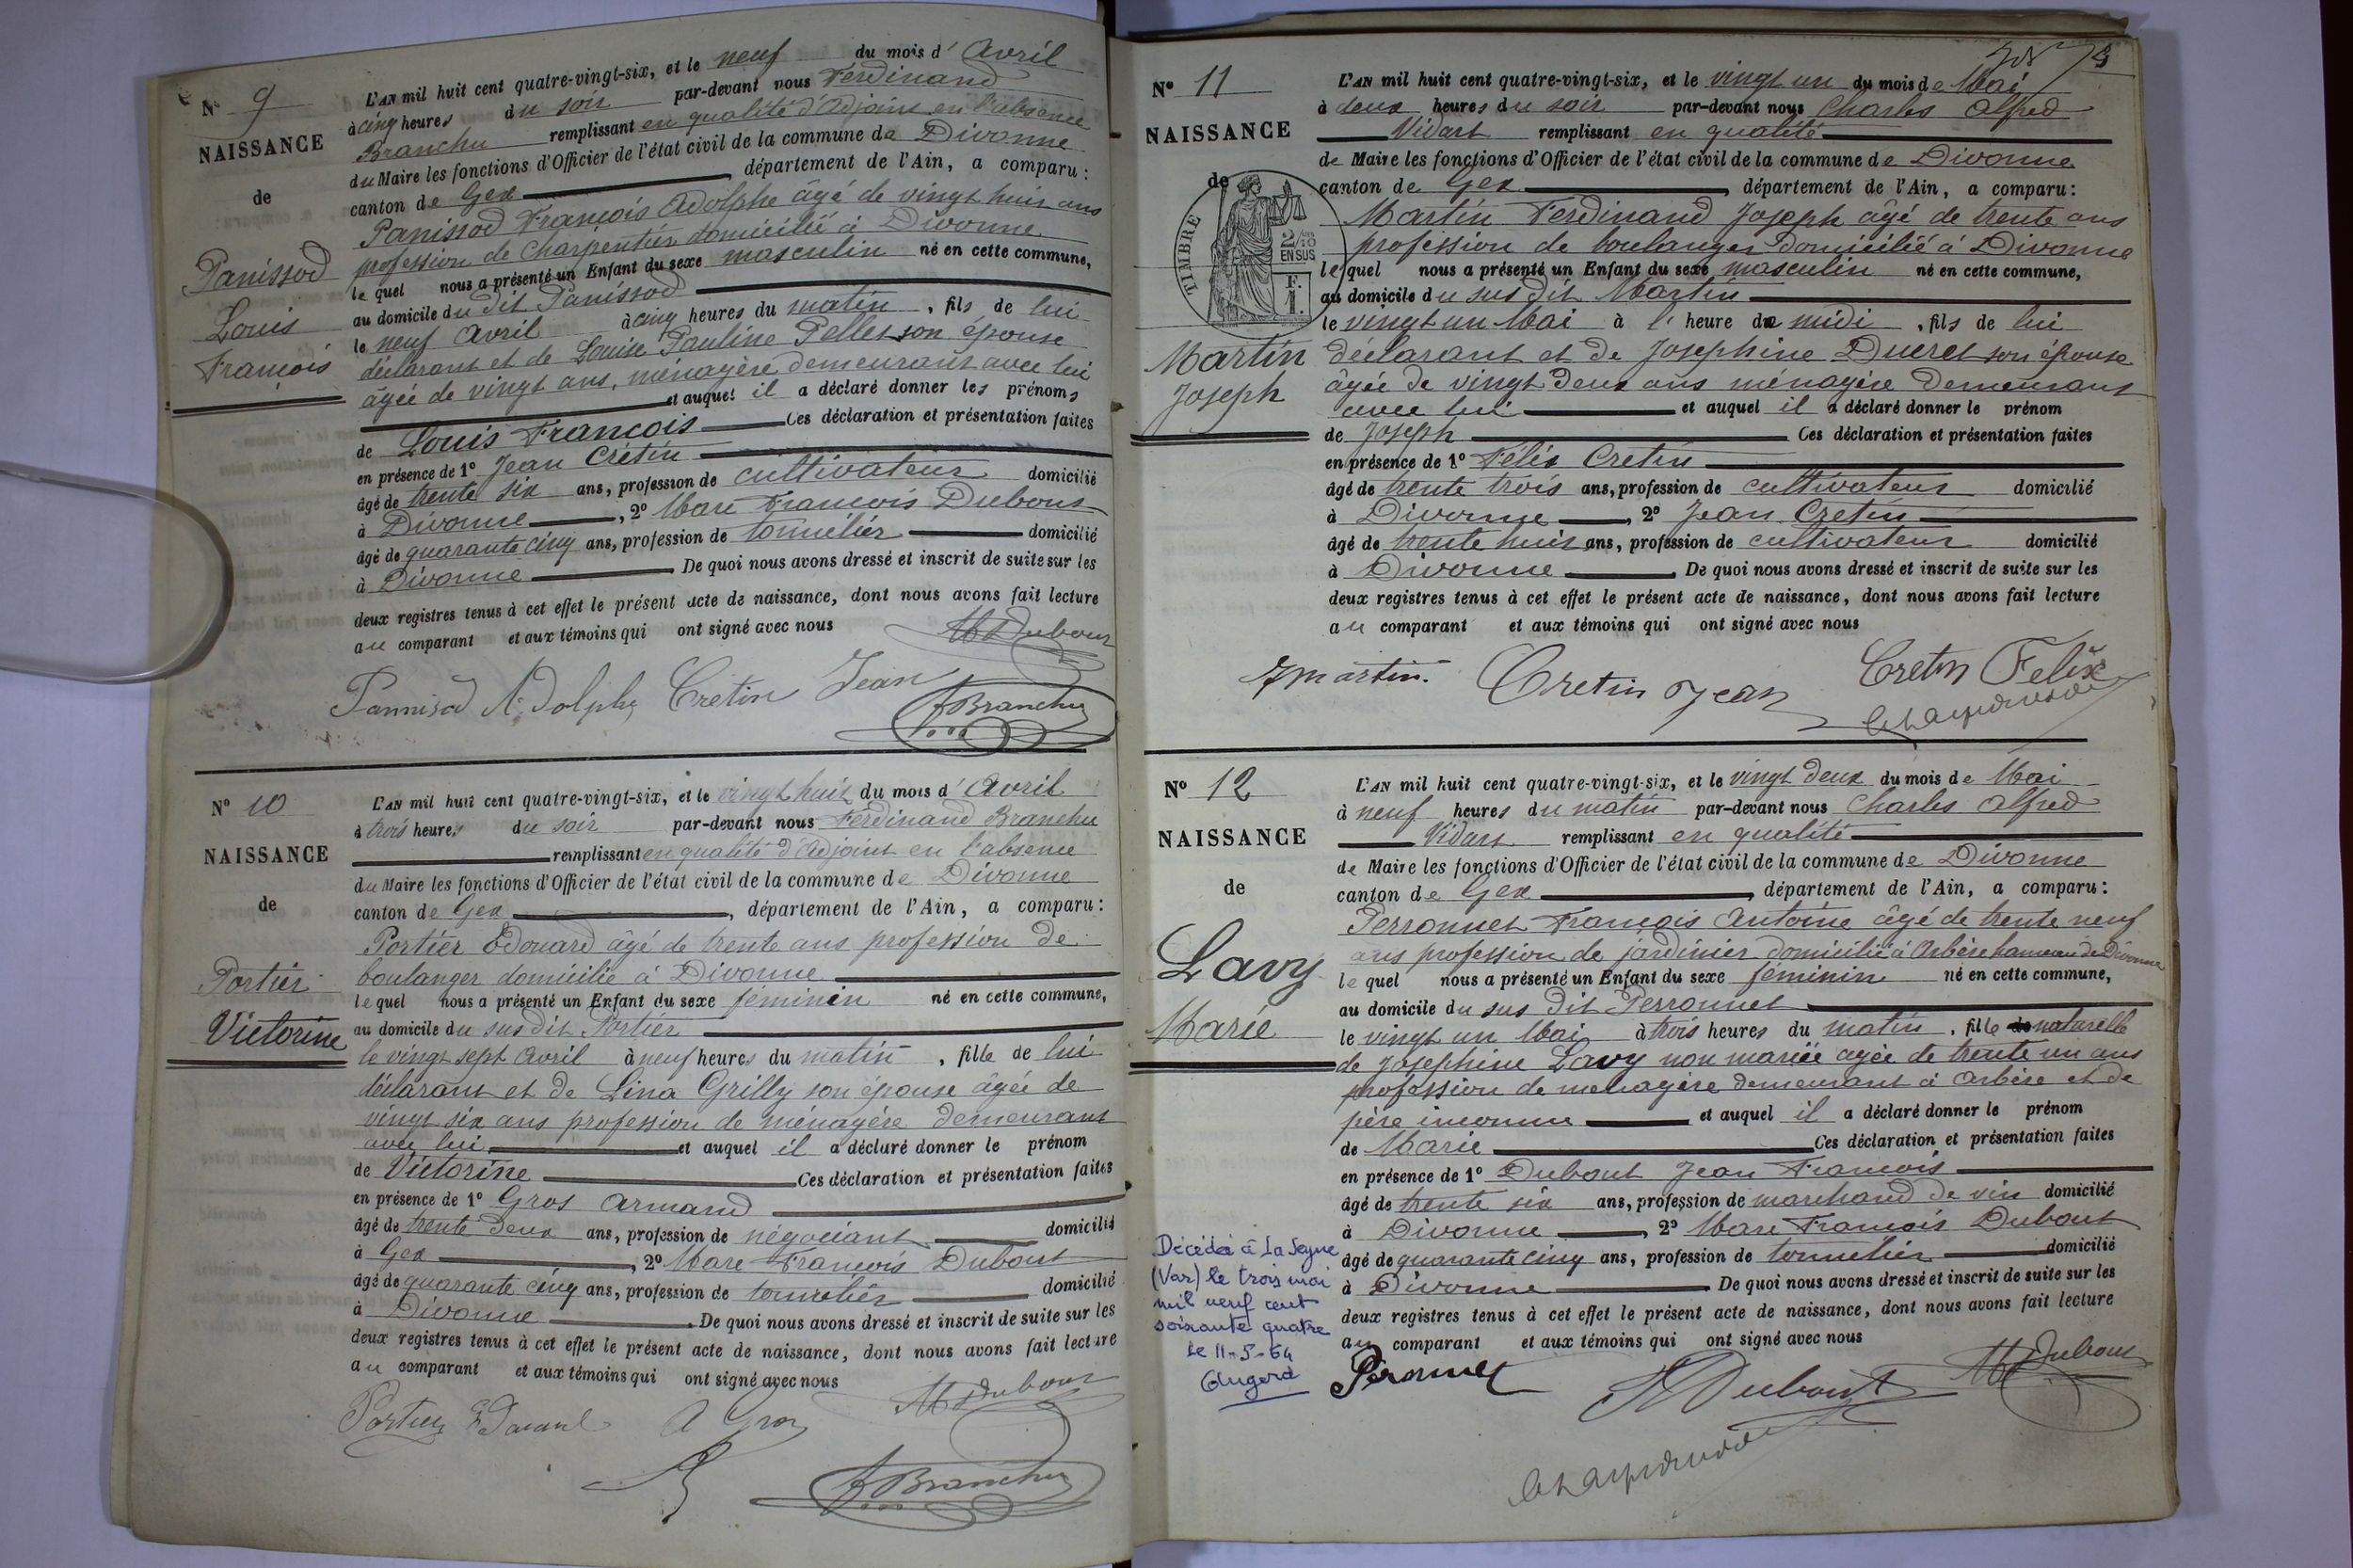 N° 9
NAISSANCE
de
Panissod
Louis
François
L'AN mil huit cent quatre-vingt-six, et le neuf du mois d'Avril
à cinq heures du soir par-devant nous Ferdinand
Branchu remplissant en qualité d'Adjoint en l'absence
du Maire les fonctions d'Officier de l'état civil de la commune de Divonne
canton de Gex, département de l'Ain, a comparu :
Panissod François Adolphe âgé de vingt huit ans
profession de charpentier domicilié à Divonne
lequel nous a présenté un Enfant du sexe masculin né en cette commune,
au domicile du dit Panissod
le neuf Avril à cinq heures du matin, fils de lui
déclarant et de Louise Pauline Pellet son épouse
âgée de vingt ans, ménagère demeurant avec lui
et auquel il a déclaré donner les prénoms
de Louis François Ces déclaration et présentation faites
en présence de 1° Jean Crétin
âgé de trente six ans, profession de cultivateur domicilié
à Divonne, 2° Marc François Dubout
âgé de quarante cinq ans, profession de tonnelier domicilié
à Divonne De quoi nous avons dressé et inscrit de suite sur les
deux registres tenus à cet effet le présent acte de naissance, dont nous avons fait lecture
au comparant et aux témoins qui ont signé avec nous
M Dubout
Pannisod Adolphe Cretin Jean
F Branchu
N° 10
NAISSANCE
de
Portier
Victorine
L'AN mil huit cent quatre-vingt-six, et le vingt huit du mois d'Avril
à trois heures du soir par-devant nous Ferdinand Branchu
remplissant en qualité d'Adjoint en l'absence
du Maire les fonctions d'Officier de l'état civil de la commune de Divonne
canton de Gex, département de l'Ain, a comparu :
Portier Edouard âgé de trente ans profession de
boulanger domicilié à Divonne
lequel nous a présenté un Enfant du sexe féminin né en cette commune,
au domicile du sus dit Portier
le vingt sept Avril à neuf heures du matin, fille de lui
déclarant et de Lina Grilly son épouse âgée de
vingt six ans profession de ménagère demeurant
avec lui et auquel il a déclaré donner le prénom
de Victorine Ces déclaration et présentation faites
en présence de 1° Gros Armand
âgé de trente deux ans, profession de négociant domicilié
à Gex, 2° Marc François Dubout
âgé de quarante cinq ans, profession de tonnelier domicilié
à Divonne. De quoi nous avons dressé et inscrit de suite sur les
deux registres tenus à cet effet le présent acte de naissance, dont nous avons fait lecture
au comparant et aux témoins qui ont signé avec nous
M Dubout
Portier Edouard A Gros
F Branchu
N° 11
NAISSANCE
de
TIMBRE
2/10
EN SUS
F.
1.
Martin
Joseph
L'AN mil huit cent quatre-vingt-six, et le vingt un du mois de Mai
à deux heures du soir par-devant nous Charles Alfred
Vidart remplissant en qualité
de Maire les fonctions d'Officier de l'état civil de la commune de Divonne
canton de Gex, département de l'Ain, a comparu :
Martin Ferdinand Joseph âgé de trente ans
profession de boulanger domicilié à Divonne
lequel nous a présenté un Enfant du sexe masculin né en cette commune,
au domicile du sus dit Martin
le vingt un Mai à l'heure de midi, fils de lui
déclarant et de Josephine Ducret son épouse
âgée de vingt deux ans ménagère demeurant
avec lui et auquel il a déclaré donner le prénom
de Joseph Ces déclaration et présentation faites
en présence de 1° Félix Cretin
âgé de trente trois ans, profession de cultivateur domicilié
à Divonne, 2° Jean Cretin
âgé de trente huit ans, profession de cultivateur domicilié
à Divonne. De quoi nous avons dressé et inscrit de suite sur les
deux registres tenus à cet effet le présent acte de naissance, dont nous avons fait lecture
au comparant et aux témoins qui ont signé avec nous
Martin. Cretin Jean Cretin Felix
N° 12
NAISSANCE
de
Lavy
Marie
L'AN mil huit cent quatre-vingt-six, et le vingt deux du mois de Mai
à neuf heures du matin par-devant nous Charles Alfred
Vidart remplissant en qualité
de Maire les fonctions d'Officier de l'état civil de la commune de Divonne
canton de Gex, département de l'Ain, a comparu :
Perronnet François Antoine âgé de trente neuf
ans profession de jardinier domicilié à Arbère hameau de Divonne
lequel nous a présenté un Enfant du sexe féminin né en cette commune,
au domicile du sus dit Perronnet
le vingt un Mai à trois heures du matin, fille de naturelle
de Josephine Lavy non mariée agée de trente un ans
profession de ménagère demeurant à Arbère et de
père inconnu et auquel il a déclaré donner le prénom
de Marie Ces déclaration et présentation faites
en présence de 1° Dubout Jean François
âgé de trente six ans, profession de marchand de vin domicilié
à Divonne, 2° Marc François Dubout
âgé de quarante cinq ans, profession de tonnelier domicilié
à Divonne. De quoi nous avons dressé et inscrit de suite sur les
deux registres tenus à cet effet le présent acte de naissance, dont nous avons fait lecture
au comparant et aux témoins qui ont signé avec nous
Décédée à La Seyne
(Var) le trois mai
mil neuf cent
soixante quatre
Le 11-5-64
Peronnet Dubout M Dubout